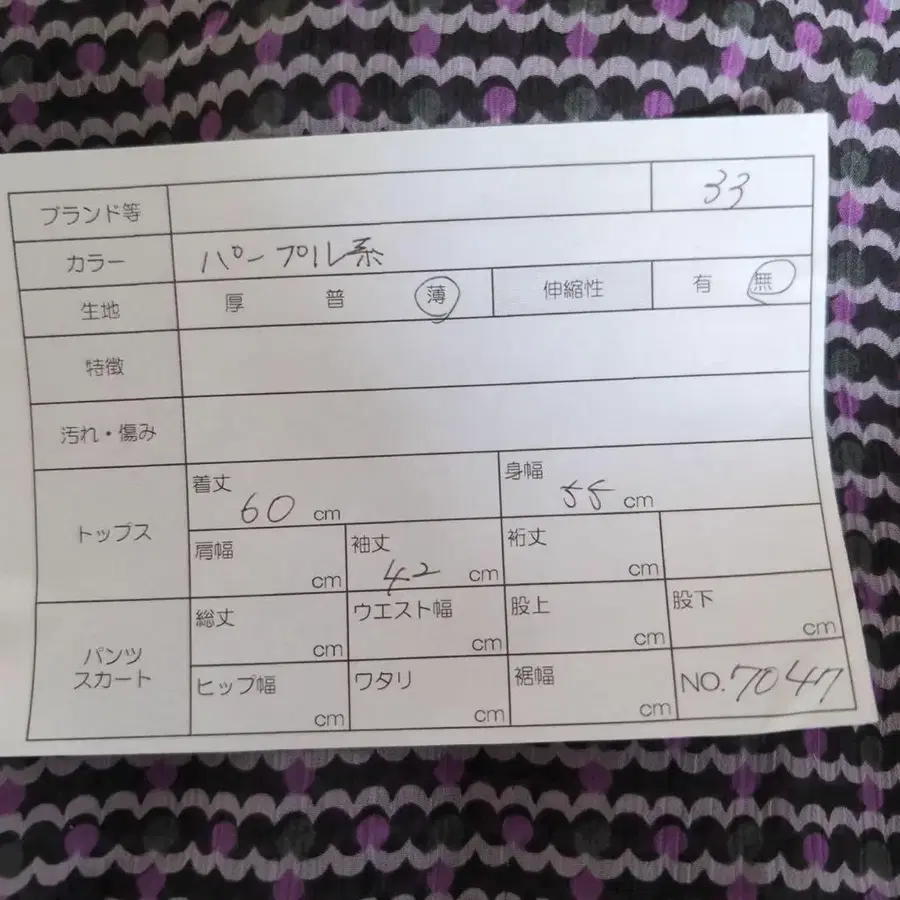 ブランド等 33
カラー パープル系
生地 厚 普 薄 伸縮性 有 無
特徴
汚れ・傷み
トップス
着丈 60 cm 身幅 55 cm
肩幅 cm 袖丈 42 cm 裄丈 cm
パンツ
スカート
総丈 cm ウエスト幅 cm 股上 cm 股下 cm
ヒップ幅 cm ワタリ cm 裾幅 cm NO.7047